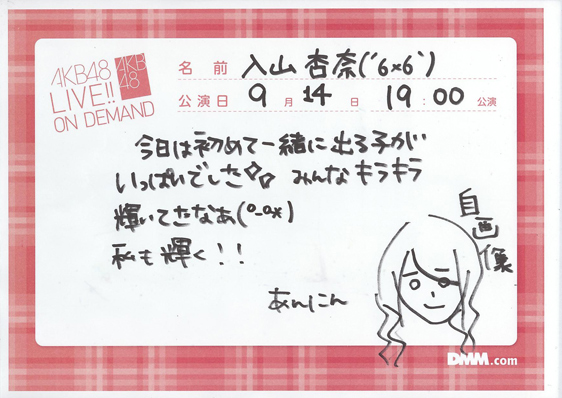 AKB48
LIVE!!
ON DEMAND
AKB
48
名前 入山 杏奈(´6×6`)
公演日 9月14日 19:00公演
今日は初めて一緒に出る子が
いっぱいでした みんなキラキラ
輝いてたなあ(o_o*)
私も輝く!!
あんにん
自画像
DMM.com